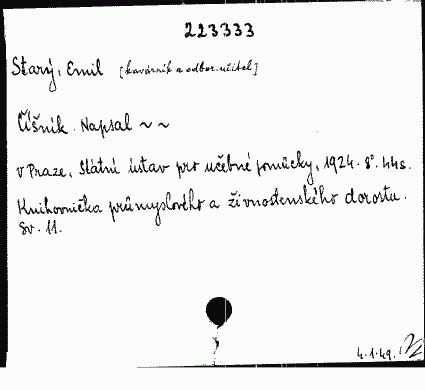 223333
Starý, Emil [kavárník a odbor. učitel]
Číšník. Napsal ~ ~
v Praze, Státní ústav pro učebné pomůcky, 1924. 8°. 44s.
Knihovnička průmyslového a živnostenského dorostu.
Sv. 11.
4.1.49.